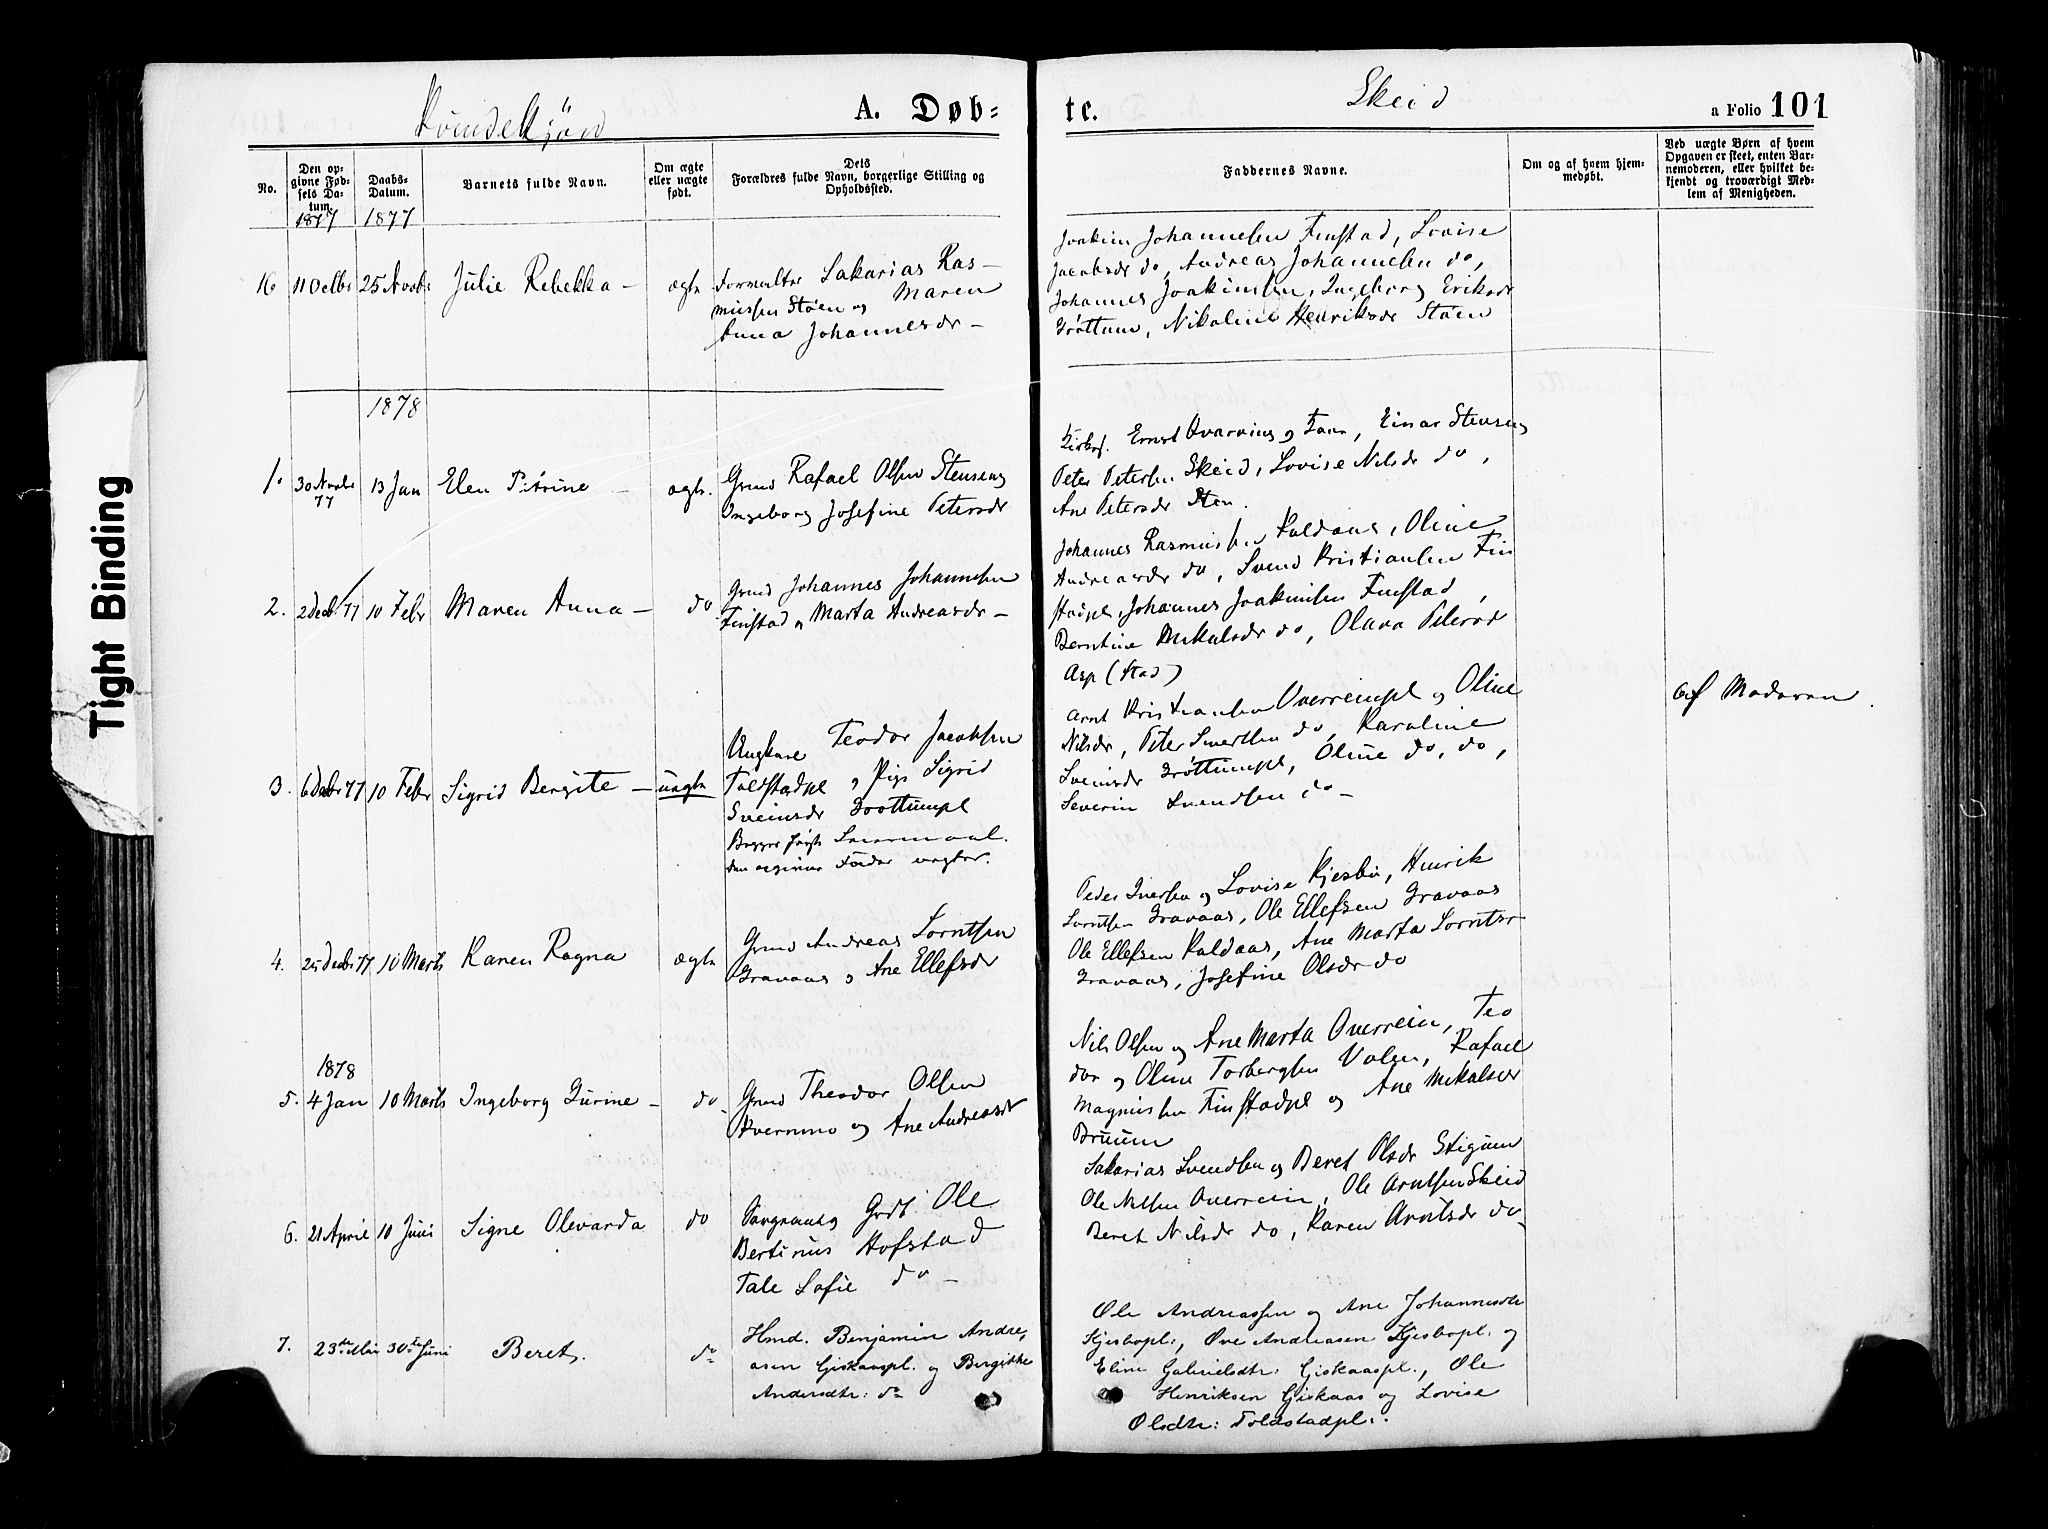 Kvindekjön
A. Døb=
te.
Skeid
a Folio 101
No.
Den op-
givne Fød-
sels Da-
tum.
Daabs-
Datum.
Barnets fulde Navn.
Om ægte
eller uægte
født.
Dets
Forældres fulde Navn, borgerlige Stilling og
Opholdssted.
Faddernes Navne.
Om og af hvem hjem-
medøbt.
Ved uægte Børn af hvem
Opgaven er skeet, enten Bar-
nemoderen, eller hvilket be-
kjendt og troværdigt Med-
lem af Menigheden.
1877 1877
16 11 Octbr 25 Novbr Julie Rebekka – ægte
Forvalter Sakarias Ras-
mussen Støen og Maren
Anna Johannesdr –
Joakim Johannesen Finstad, Lovise
Jacobsdr do, Andreas Johannesen do,
Johannes Joakimsen, Ingeborg Eriksdr
Grøttum, Nikoline Henriksdr Støen
1878
1. 30 Novbr 77 13 Jan Elen Petrine – ægte.
Grmd Rafael Olsen Stenseng
Ingeborg Josefine Petersdr
Kirkes. Ernst Qvarnius og Kone, Einar Stenseng
Peter Petersen Skeid, Lovise Nilsdr do,
Ane Petersdr Sten.
2. 2 Decbr 77 10 Febr Maren Anna – do
Grmd Johannes Johannesen
Finstad og Marta Andreasdr –
Johannes Rasmussen Kaldaas, Oline
Andreasdr do, Svend Kristiansen Fin
stadpl, Johannes Joakimsen Finstad,
Berntine Mikalsdr do, Olava Petersdr
Asp (Stad)
3. 6 Decbr 77 10 Febr Sigrid Bergite – uægte
Ungkarl Teodor Jacobsen
Foldstadpl og Pige Sigrid
Sveinsdr Grøttumpl
Begges første Leiermaal.
Den opgivne Fader vægter.
Arnt Kristiansen Overreinpl og Oline
Nilsdr, Peter Sivertsen do, Karoline
Sveinsdr Grøttumpl, Oline do, do,
Severin Svendsen do –
af Moderen.
4. 25 Decbr 77 10 Marts Karen Ragna ægte
Grmd Andreas Lorntsen
Gravaas og Ane Ellefsdr
Peder Iversen og Lovise Kjesbu, Henrik
Lorntsen Gravaas, Ole Ellefsen Gravaas
Ole Ellefsen Kaldaas, Ane Marta Lorntsdr
Gravaas, Josefine Olsdr do
1878
5. 4 Jan 10 Marts Ingeborg Gurine – do –
Grmd Theodor Olsen
Kvernmo og Ane Andreasdr
Nils Olsen og Ane Marta Overrein, Teo
dor og Oline Torbergsen Valen, Rafael
Magnussen Finstadpl og Ane Mikalsdr
Bruum
6. 21 April 10 Juni Signe Olevarda do
Ole
Bertinus Hofstad
Tale Sofie do –
Sakarias Svendsen og Beret Olsdr Stigum
Ole Nilsen Overrein, Ole Arntsen Skeid
Beret Nilsdr do, Karen Arntsdr do
7. 23de Mai 30te Juni Beret. do
Hmd. Benjamin Andre,
asen Giskaaspl. og Bergitte
Andersdtr: do
Ole Andreassen og Ane Johannesdtr
Kjesbopl:, Ove Andreasen Kjesbopl. og
Eline Gabrielsdtr: Giskaaspl., Ole
Henriksen Giskaas og Lovise
Olsdtr: Foldstadpl:.
Tight Binding